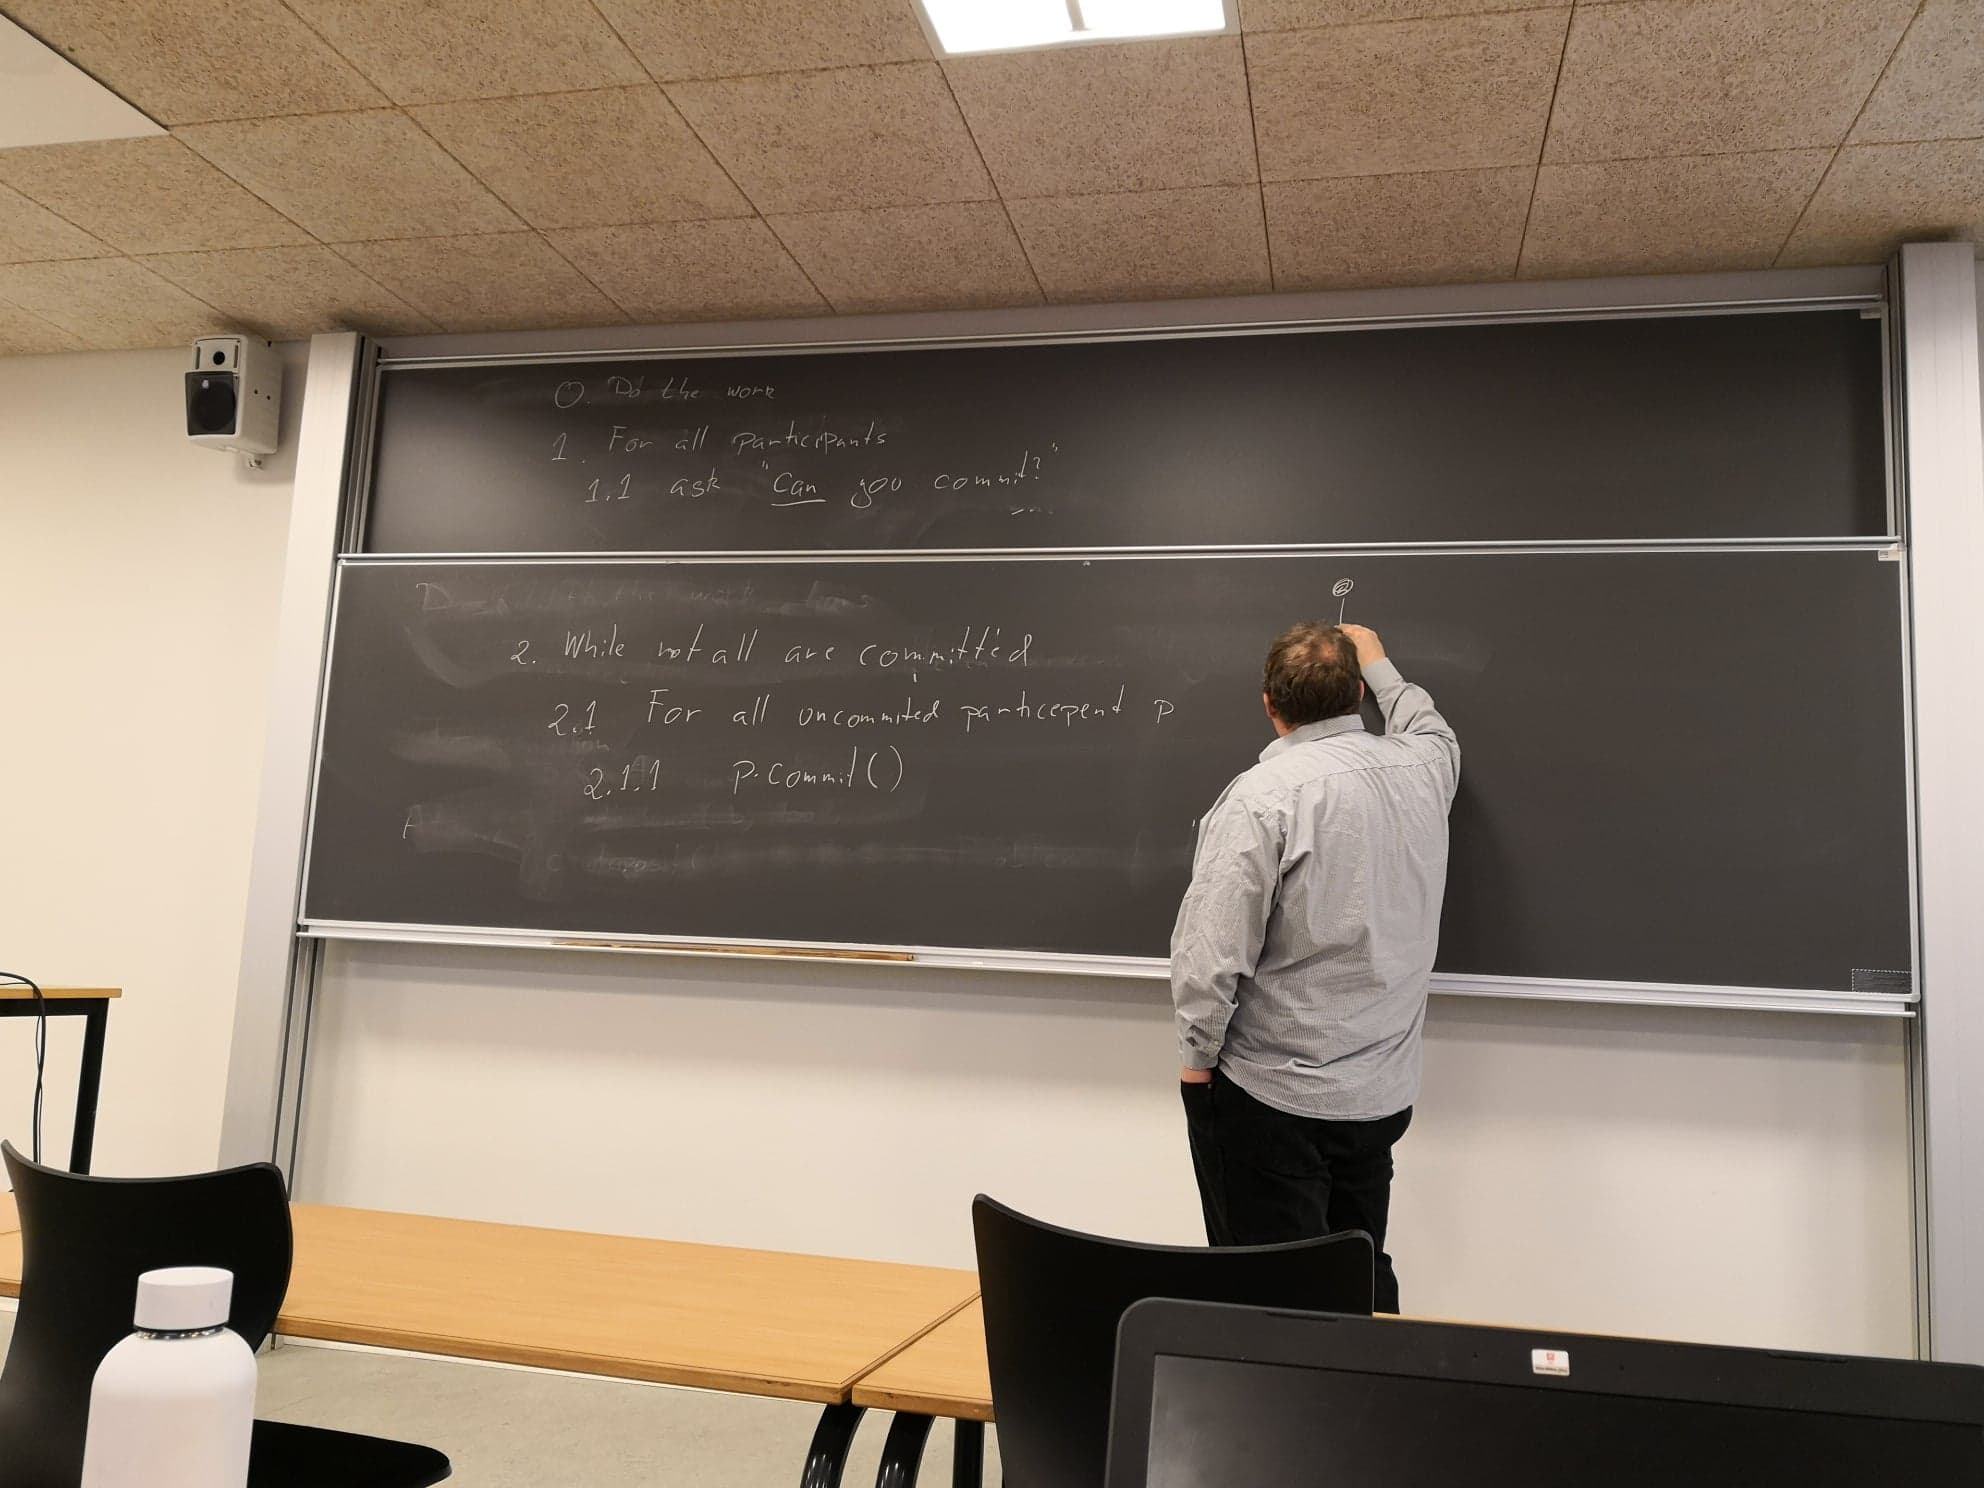 0. Do the work
1. For all participants
1.1 ask "Can you commit?"
2. While not all are committed
2.1 For all uncommited particepent p
2.1.1 p.commit()